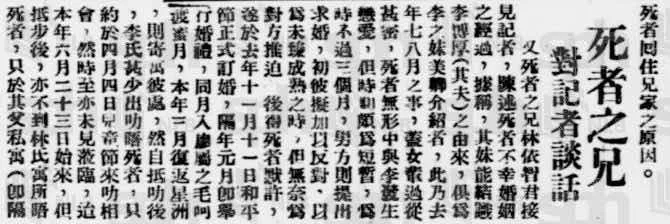 死者回住兄家之原因。
死者之兄
對記者談話
又死者之兄林依智君接
見記者，陳述死者不幸婚姻
之經過，據稱，其妹能結識
李博厚（其夫）之由來，俱爲
李之妹美聯介紹者，此乃去
年七八月之事，蓋女輩過從
甚密，死者無形中與李發生
戀愛，但時期頗爲短暫，爲
時不過三個月，男方則提出
求婚，初彼擬加以反對，以
爲未臻成熟之時，但無奈爲
對方推迫，後得死者默許，
遂於去年十一月十一日和平
節正式訂婚，隔年元月即舉
行婚禮，同月入廖屬之毛呵
渡蜜月，本年三月復返星洲
，則寄寓彼處，然自抵叻後
，李氏甚少出叻晤死者，只
約於四月四日兒童節來叻相
會，然時至亦未見蒞臨，迨
本年六月二十三日始來，但
抵步後，亦不到林氏寓所晤
死者，只於其父私寓（即隔